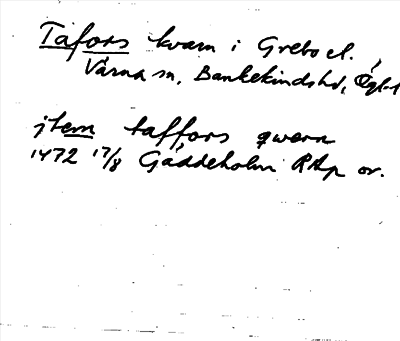 Tåfors kvarn i Grebo el.
Värna sn, Bankekindshd, Ögl.
jtem taffors qwern
1472 17/8 Gäddeholm RAp or.